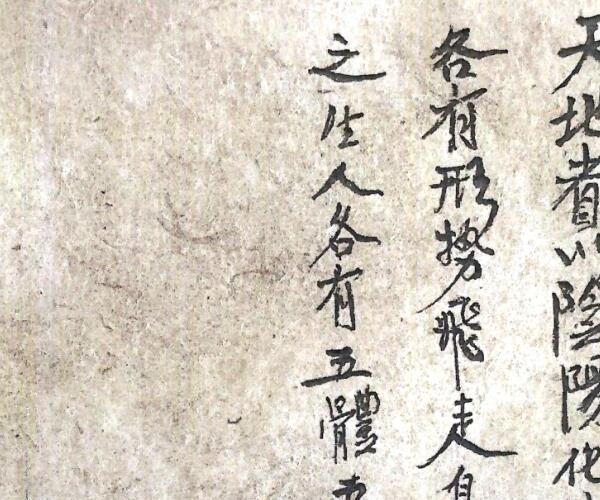 天地者以陰陽化
各有形勢飛走自
之生人各有五體五